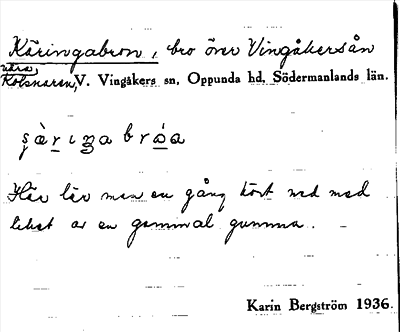 Käringabron, bro över Vingåkersån
nära
Kolsnaren, V. Vingåkers sn, Oppunda hd, Södermanlands län.
Här lär man en gång kört ned med
liket av en gammal gumma. –
Karin Bergström 1936.